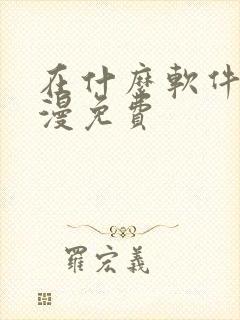 在什麼軟件
漫免費
羅宏義